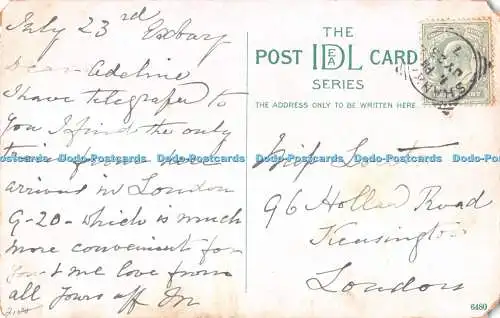 July 23rd Exbury
Dear Adeline
I have telegrafed to
you I find the only
train from here
arrives in London
9-20- which is much
more convenient for
you & me love from
all yours aff M
THE
POST IDEAL CARD
SERIES
THE ADDRESS ONLY TO BE WRITTEN HERE
Miss
96 Holland Road
Kensington
London
6480
Dodo-Postcards Dodo-Postcards Dodo-Postcards Dodo-Postcards